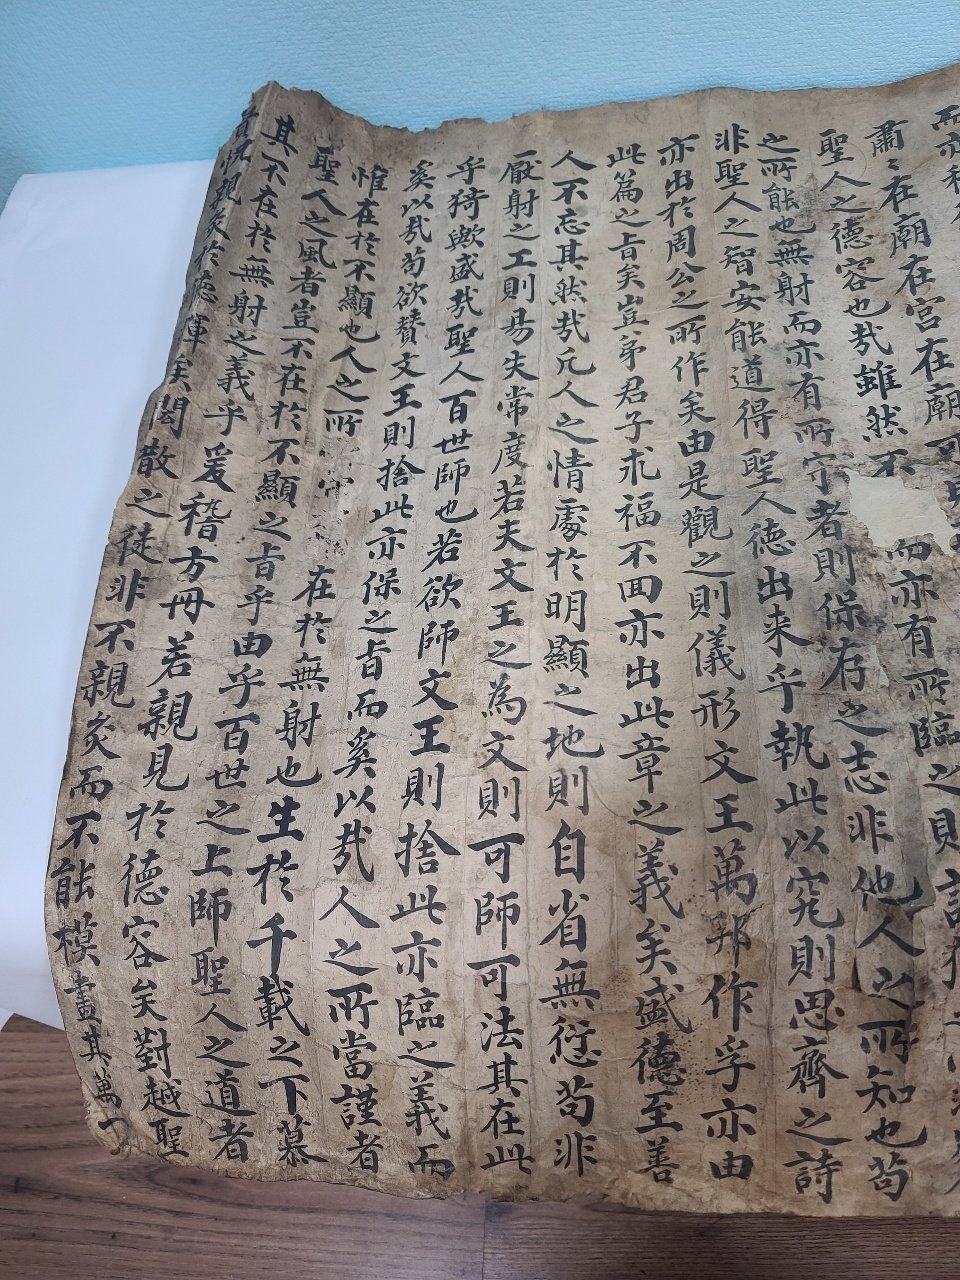 肅〻在廟在宮在廟
而亦有所臨之則
聖人之德容也哉雖然不
之所能也無射而亦有所守者則保存之志非他人之所知也苟
非聖人之智安能道得聖人德出來乎執此以究則思齊之詩
亦出於周公之所作矣由是觀之則儀形文王萬邦作孚亦由
此篇之旨矣豈弟君子求福不回亦出此章之義矣盛德至善
人不忘其然哉凡人之情處於明顯之地則自省無愆苟非
厭射之工則易失常度若夫文王之為文則可師可法其在此
乎猗歟盛哉聖人百世師也若欲師文王則捨此亦臨之義而
奚以哉苟欲贊文王則捨此亦保之旨而奚以哉人之所當謹者
惟在於不顯也人之所
在於無射也生於千載之下慕
聖人之風者豈不在於不顯之旨乎由乎百世之上師聖人之道者
其不在於無射之義乎爰稽方冊若親見於德容矣對越聖
親炙於德輝矣閎散之徒非不親炙而不能模畫其萬一